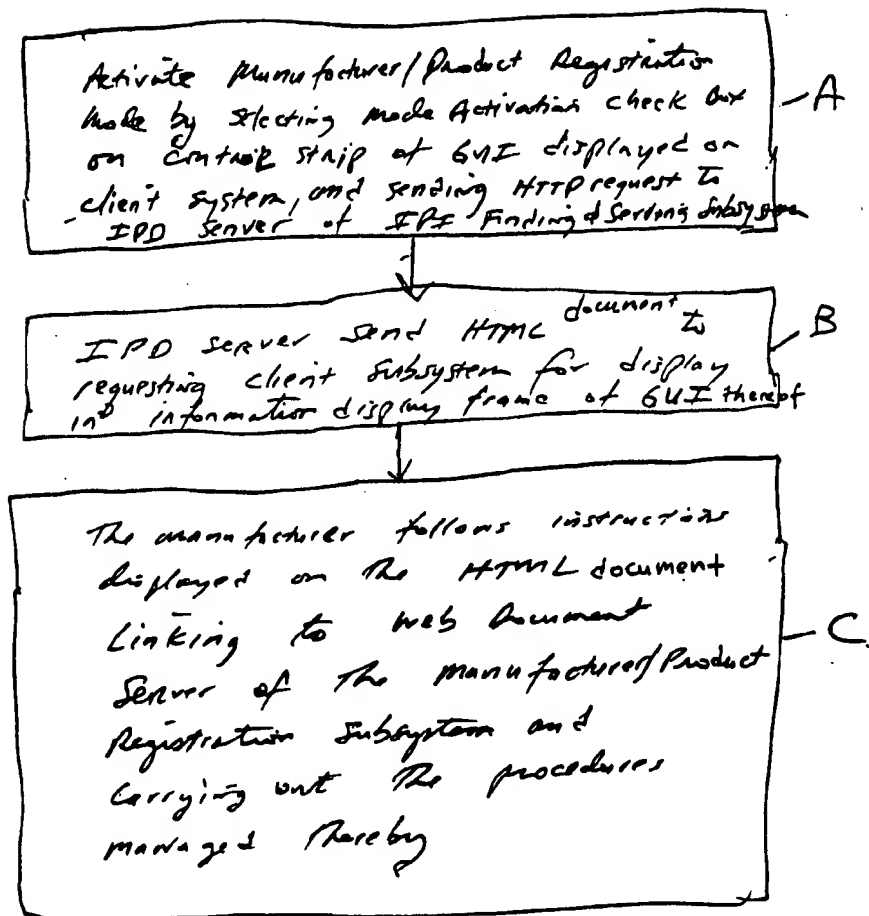 Activate Manufacturer/Product Registration
Mode by selecting mode Activation check Box
on control strip of GUI displayed on
client system, and sending HTTP request to
IPD server of IPI Finding & Serving Subsystem
A
IPD server send HTML document to
requesting client subsystem for display
in information display frame of GUI thereof
B
The manufacturer follows instructions
displayed on the HTML document
Linking to web Document
Server of the Manufacturer/Product
Registration Subsystem and
carrying out the procedures
managed thereby
C